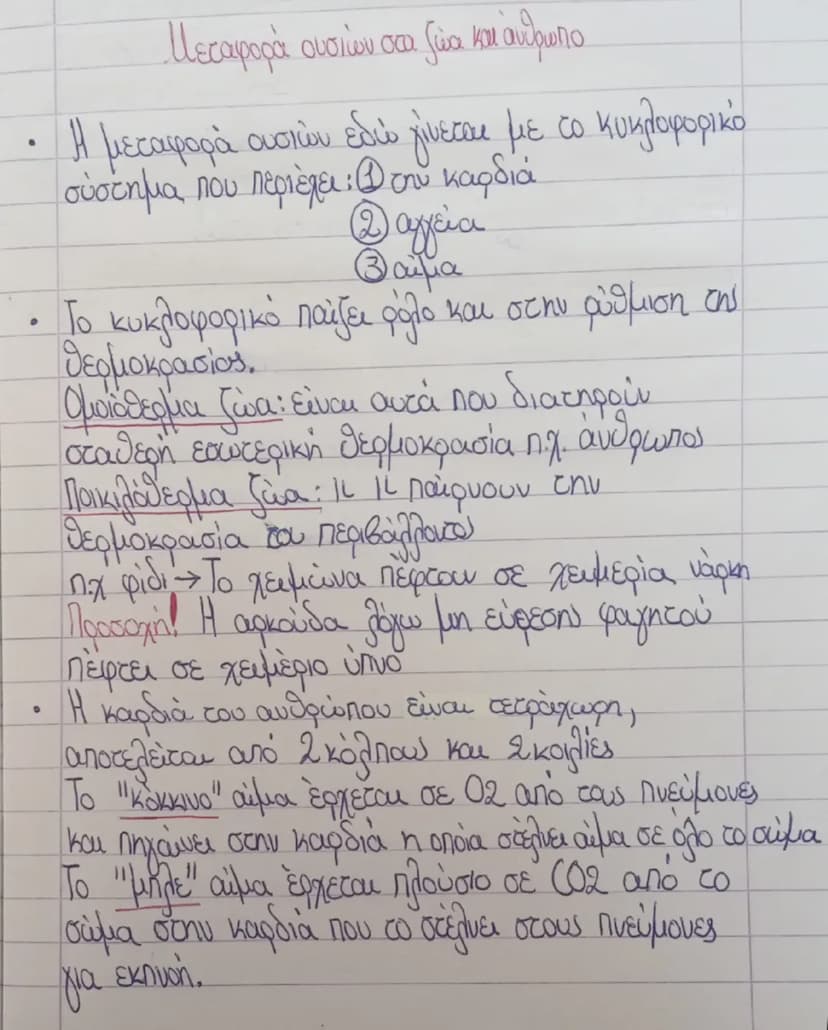 Μεταφορά ουσιών στα ζώα και άνθρωπο
• Η μεταφορά ουσιών εδώ γίνεται με το κυκλοφορικό
σύστημα που περιέχει: ① την καρδιά
② αγγεία
③ αίμα
• Το κυκλοφορικό παίζει ρόλο και στην ρύθμιση της
θερμοκρασίας.
Ομοιόθερμα ζώα: είναι αυτά που διατηρούν
σταθερή εσωτερική θερμοκρασία π.χ. άνθρωπος
Ποικιλόθερμα ζώα: 〃 〃 παίρνουν την
θερμοκρασία του περιβάλλοντος
π.χ φίδι → Το χειμώνα πέφτουν σε χειμερία νάρκη
Προσοχή! Η αρκούδα λόγω μη εύρεσης φαγητού
πέφτει σε χειμέριο ύπνο
• Η καρδιά του ανθρώπου είναι τετράχωρη,
αποτελείται από 2 κόλπους και 2 κοιλίες
Το "κόκκινο" αίμα έρχεται σε O2 από τους πνεύμονες
και πηγαίνει στην καρδιά η οποία στέλνει αίμα σε όλο το σώμα
Το "μπλε" αίμα έρχεται πλούσιο σε CO2 από το
σώμα στην καρδία που το στέλνει στους πνεύμονες
για εκπνοή.